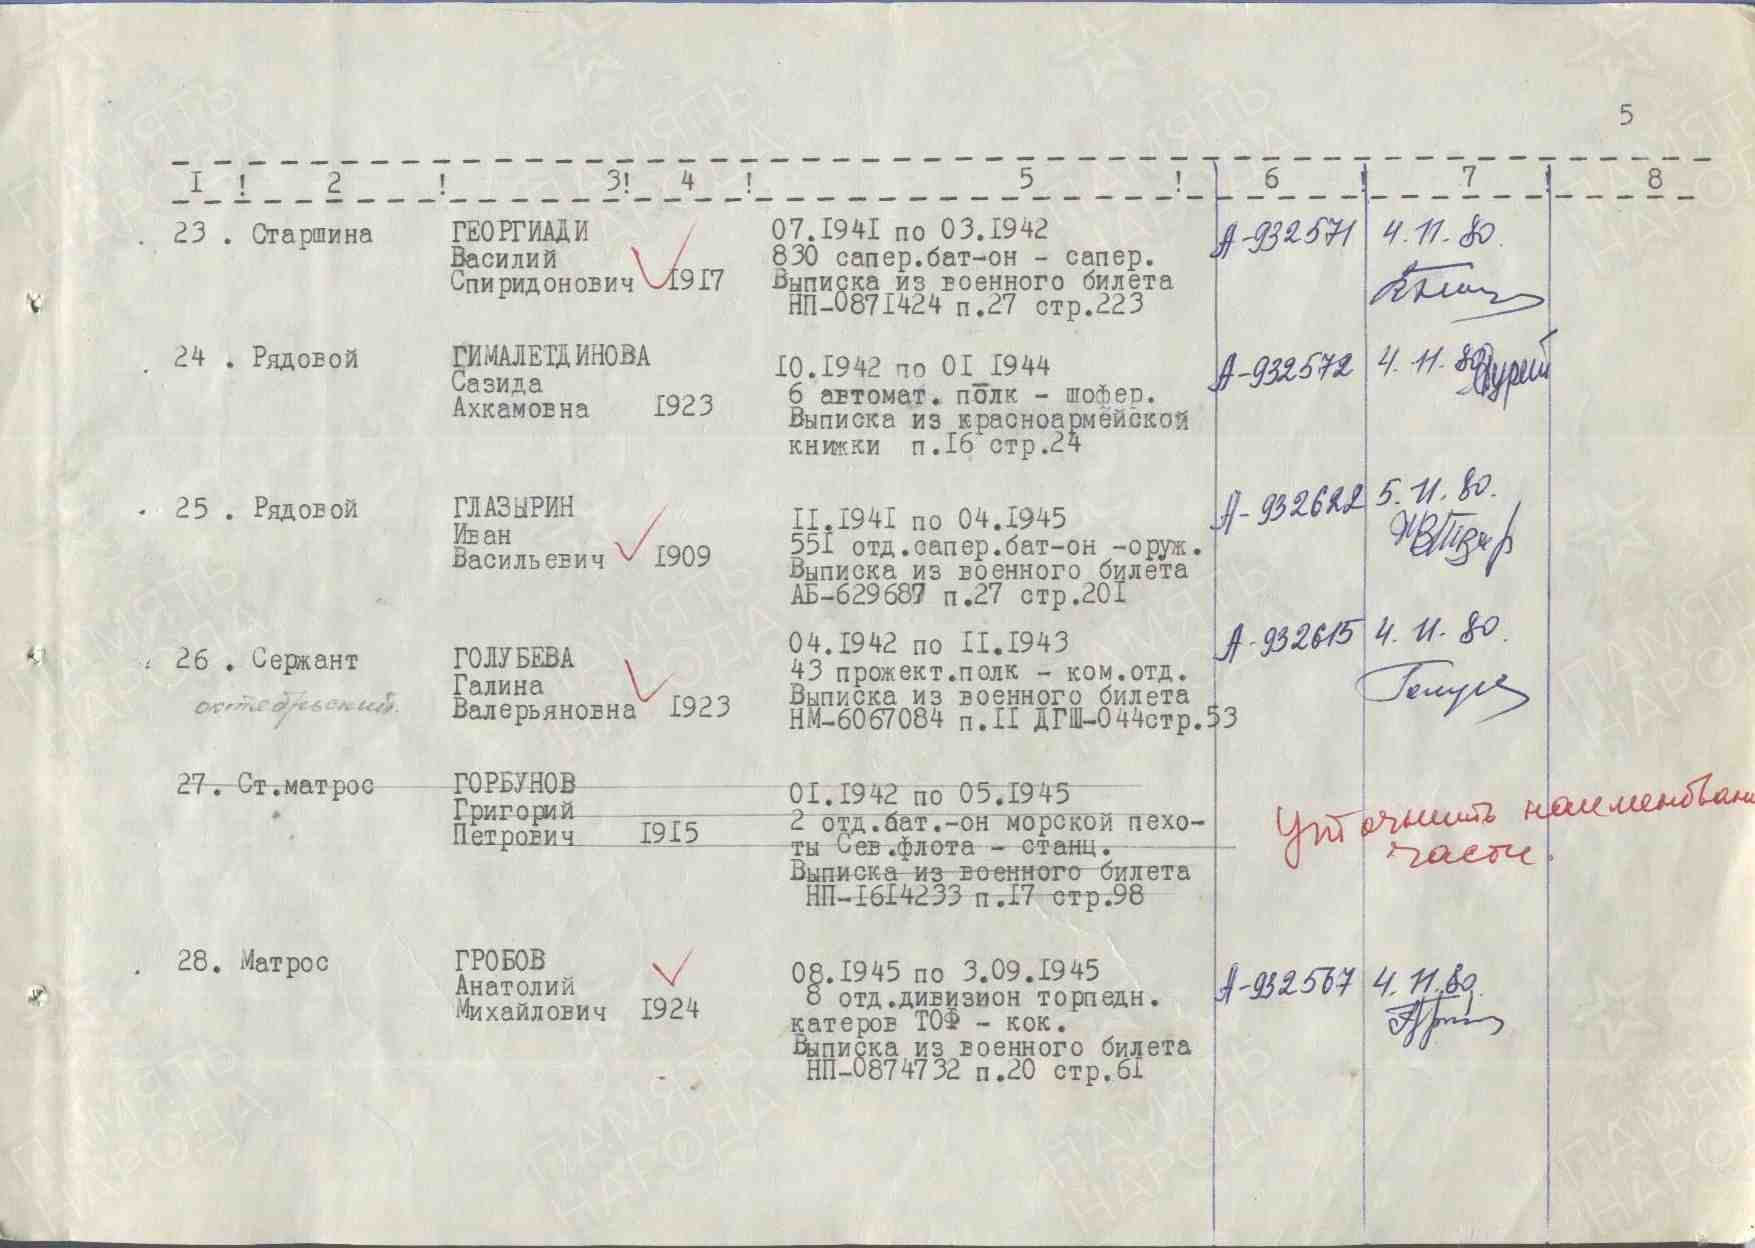 5
I ! 2 ! 3! 4 ! 5 ! 6 ! 7 ! 8
23 . Старшина ГЕОРГИАДИ 07.I94I по 03.I942 А-932571 4.11.80.
Василий 830 сапер.бат-он - сапер.
Спиридонович I9I7 Выписка из военного билета
НП-087I424 п.27 стр.223
24 . Рядовой ГИМАЛЕТДИНОВА I0.I942 по 0I I944 А-932572 4.11.80
Сазида 6 автомат. полк - шофер.
Ахкамовна I923 Выписка из красноармейской
книжки п.I6 стр.24
25 . Рядовой ГЛАЗЫРИН II.I94I по 04.I945 А-932622 5.11.80.
Иван 55I отд.сапер.бат-он -оруж.
Васильевич I909 Выписка из военного билета
АБ-629687 п.27 стр.20I
26 . Сержант ГОЛУБЕВА 04.I942 по II.I943 А-932615 4.11.80.
Галина 43 прожект.полк - ком.отд.
октябрьский. Валерьяновна I923 Выписка из военного билета
НМ-6067084 п.II ДГШ-044стр.53
27. Ст.матрос ГОРБУНОВ 0I.I942 по 05.I945
Григорий 2 отд.бат.-он морской пехо-
Петрович I9I5 ты Сев.флота - станц.
Выписка из военного билета
НП-I6I4233 п.I7 стр.98
Уточнить наименован
части.
28. Матрос ГРОБОВ 08.I945 по 3.09.I945 А-932567 4.11.80.
Анатолий 8 отд.дивизион торпедн.
Михайлович I924 катеров ТОФ - кок.
Выписка из военного билета
НП-0874732 п.20 стр.6I